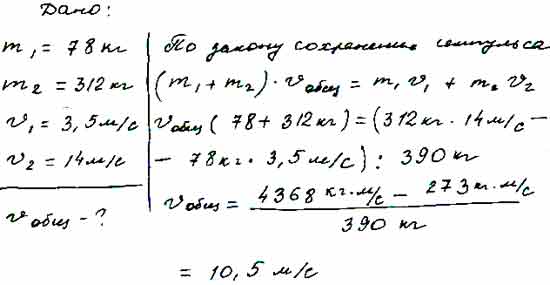 Дано:
m₁ = 78 кг
m₂ = 312 кг
v₁ = 3,5 м/с
v₂ = 14 м/с
v общ - ?
По закону сохранения импульса
(m₁ + m₂) · v общ = m₁ v₁ + m₂ v₂
v общ ( 78 + 312 кг ) = (312 кг · 14 м/с –
– 78 кг · 3,5 м/с) : 390 кг
v общ = 4368 кг·м/с – 273 кг·м/с
390 кг
= 10,5 м/с